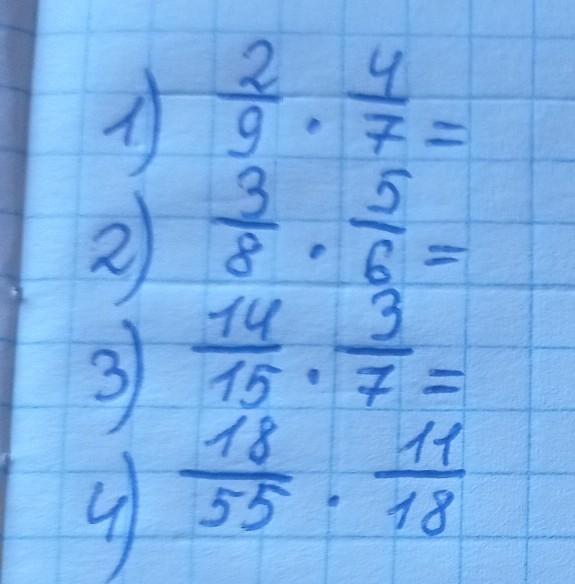 1) 2/9 · 4/7 =
2) 3/8 · 5/6 =
3) 14/15 · 3/7 =
4) 18/55 · 11/18